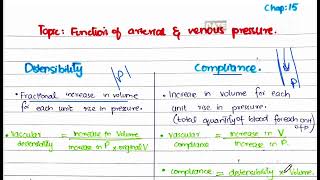 Chap: 15
Topic: Function of arterial & venous pressure.
Distensibility
Compliance.
P
P
• Fractional increase in volume
for each unit rise in pressure.
• Increase in volume for each
unit rise in pressure.
(total quantity of blood for each
of P
• Vascular distensibility = increase in Volume
increase in P x original V
• vascular compliance = increase in V
increase in P.
• compliance = distensibility x Volume.